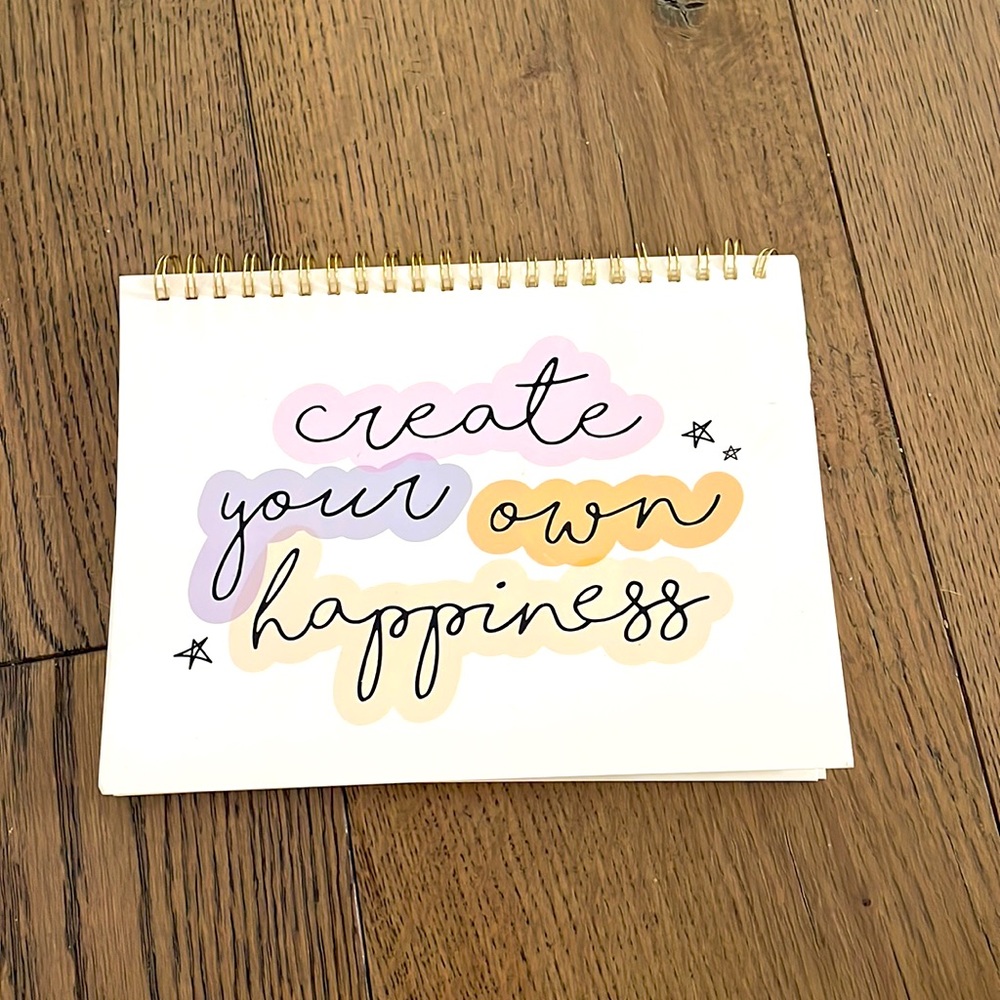 create
your own
happiness